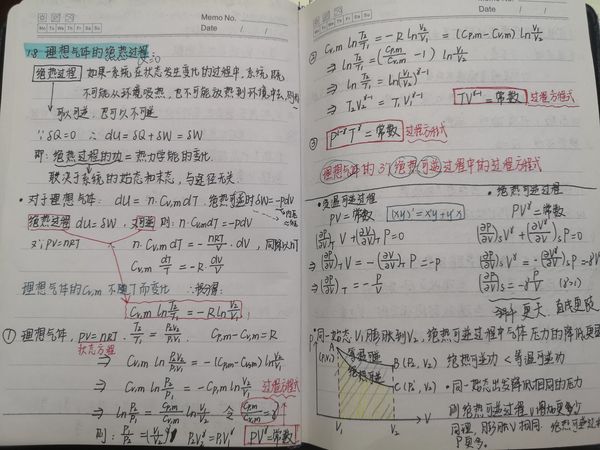 Memo No.
Date / /
Mo Tu We Th Fr Sa Su
1.8 理想气体的绝热过程:
(Q=0)
绝热过程 如果一系统在状态发生变化的过程中,系统既
不可能从环境吸热,也不可能放热到环境中去,则称
可以可逆,也可以不可逆
∵ δQ=0 ∴ dU=δQ+δW=δW
即:绝热过程的功=热力学能的变化
取决于系统的始态和末态,与途径无关
• 对于理想气体: dU = n·Cv,mdT 绝热可逆时δW=-pdV
绝热过程 dU=δW, 又可逆 则: n·Cv,mdT=-pdV
又∵ pV=nRT n·Cv,mdT=-nRT/V·dV, 同除以nT
Cv,m dT/T = -R·dV/V
理想气体的Cv,m不随T而变化 ∴积分得:
Cv,m ln T₂/T₁ = -R ln V₂/V₁
① 理想气体, pV=nRT. T₂/T₁ = P₂V₂/P₁V₁ Cp,m-Cv,m=R
状态方程
⇒ Cv,m ln P₂V₂/P₁V₁ = -(Cp,m-Cv,m) ln V₂/V₁
⇒ Cv,m ln P₂/P₁ = -Cp,m ln V₂/V₁ 过程方程式
⇒ ln P₂/P₁ = Cp,m/Cv,m ln V₁/V₂ 令 Cp,m/Cv,m = γ
则: P₂/P₁ = (V₁/V₂)^γ P₂V₂^γ = P₁V₁^γ PV^γ=常数
Memo No.
Date / /
Mo Tu We Th Fr Sa Su
② Cv,m ln T₂/T₁ = -R ln V₂/V₁ = (Cp,m-Cv,m) ln V₁/V₂
⇒ ln T₂/T₁ = (Cp,m/Cv,m - 1) ln V₁/V₂
⇒ ln T₂/T₁ = ln(V₁/V₂)^γ-1
⇒ T₂V₂^γ-1 = T₁V₁^γ-1 TV^γ-1=常数 过程方程式
③ P^1-γ T^γ=常数 过程方程式
理想气体的3个绝热可逆过程中的过程方程式
• 等温可逆过程
PV=常数 (xy)'=x'y+y'x
(∂P/∂V)_T V + (∂V/∂V)_T P=0
⇒ (∂P/∂V)_T V = -(∂V/∂V)_T P = -P
⇒ (∂P/∂V)_T = -P/V
• 绝热可逆过程
PV^γ=常数
(∂P/∂V)_S V^γ + (∂V^γ/∂V)_S P=0
(∂P/∂V)_S = -γ P/V (γ>1)
斜率更大
• 同一始态V₁膨胀到V₂,绝热可逆过程中气体压力的降低更
P
A
(P₁V₁)
等温可逆
绝热可逆
B (P₂, V₂) 绝热可逆功 < 等温可逆功
C (P₂', V₂) • 同一始态出发降低相同的压力
V₁ V₂ V
则绝热可逆过程
同理,膨胀V相同
P更多.